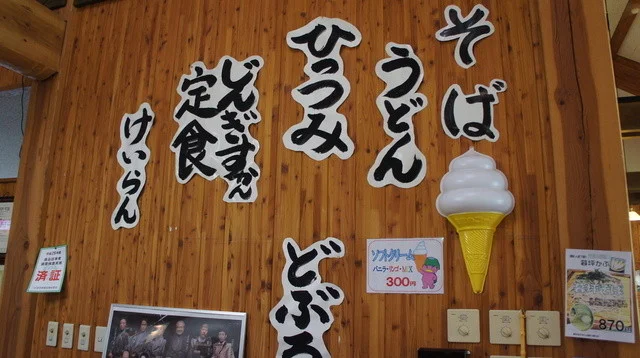 そば
うどん
ひっつみ
じんぎすかん
定食
けいらん
どぶろ
ソフトクリーム
バニラ・リンゴ・MIX
300円
済証
暮坪かぶ
870